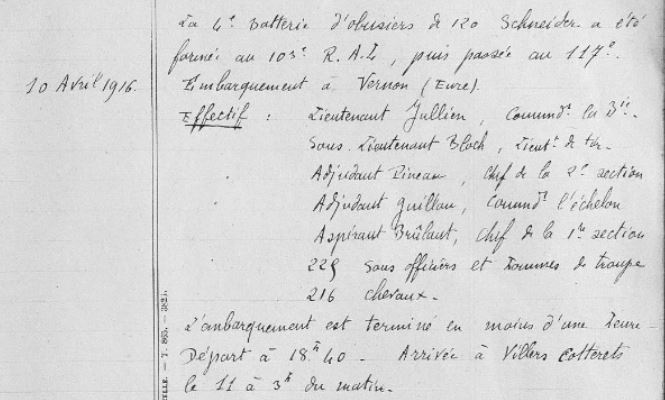 La 4e Batterie d'obusiers de 120 Schneider a été
formée au 103e R.A.L, puis passée au 117e.
10 Avril 1916. Embarquement à Vernon (Eure).
Effectif : Lieutenant Jullien, Commndt la Bie.
Sous. Lieutenant Bloch, Lieutt de tir.
Adjudant Pineau, Chef de la 2e section
Adjudant Guillou, Commdt l'échelon
Aspirant Brûlant, Chef de la 1re section
229 Sous officiers et hommes de troupe
216 chevaux.
L'embarquement est terminé en moins d'une heure.
Départ à 18h40. Arrivée à Villers Cotterets
le 11 à 3h du matin.
ELLE. — T. 865. — 382.